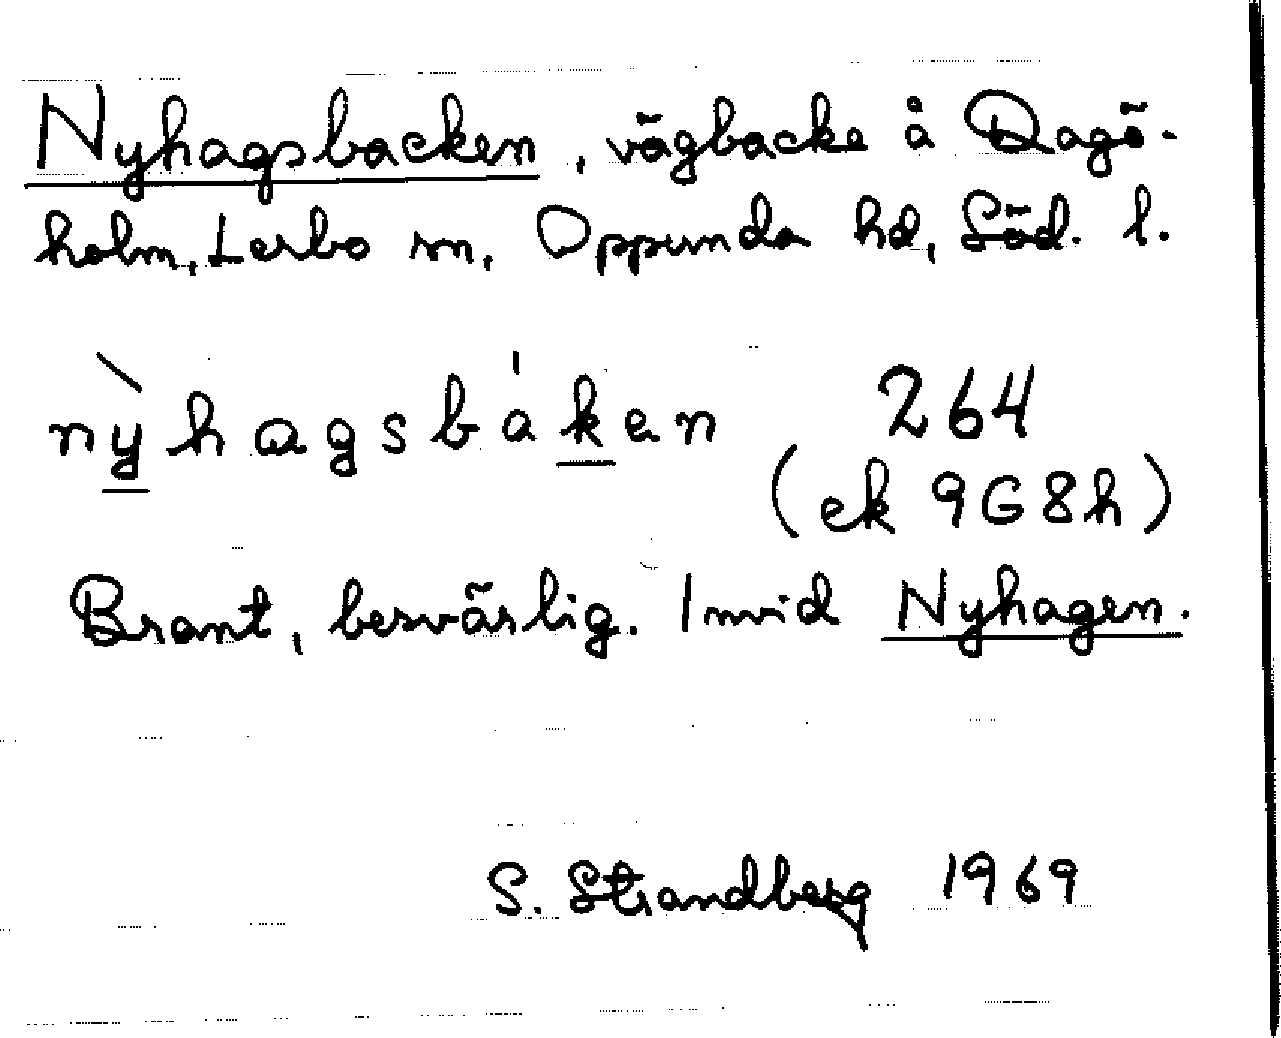 Nyhagsbacken, vägbacke å Dagö-
holm, Lerbo sn, Oppunda hd, Söd. l.
nỳhagsbáken 264
(ek 9G8h)
Brant, besvärlig. Invid Nyhagen.
S. Strandberg 1969